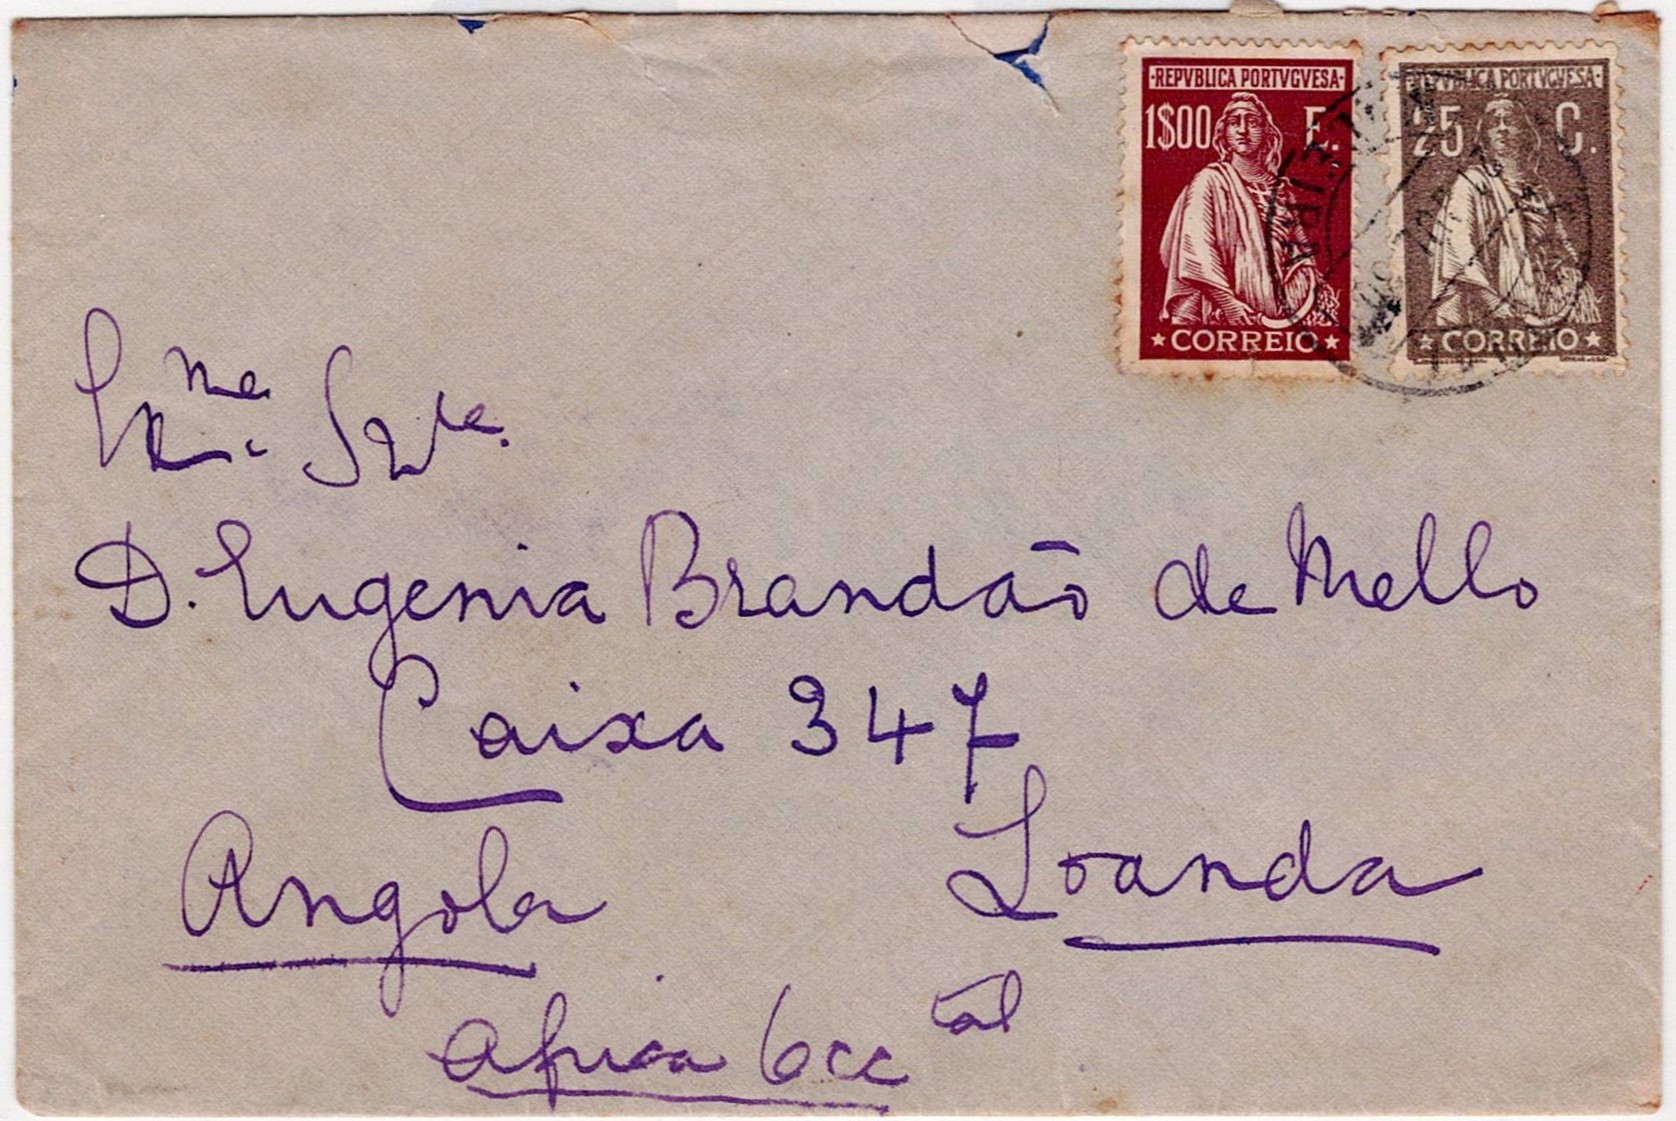 ·REPVBLICA PORTVGVESA·
1$00 E.
★ CORREIO ★
·REPVBLICA PORTVGVESA·
25 C.
★ CORREIO ★
Exma. Snra.
D. Eugenia Brandão de Mello
Caixa 347
Loanda
Angola
Africa Occtal